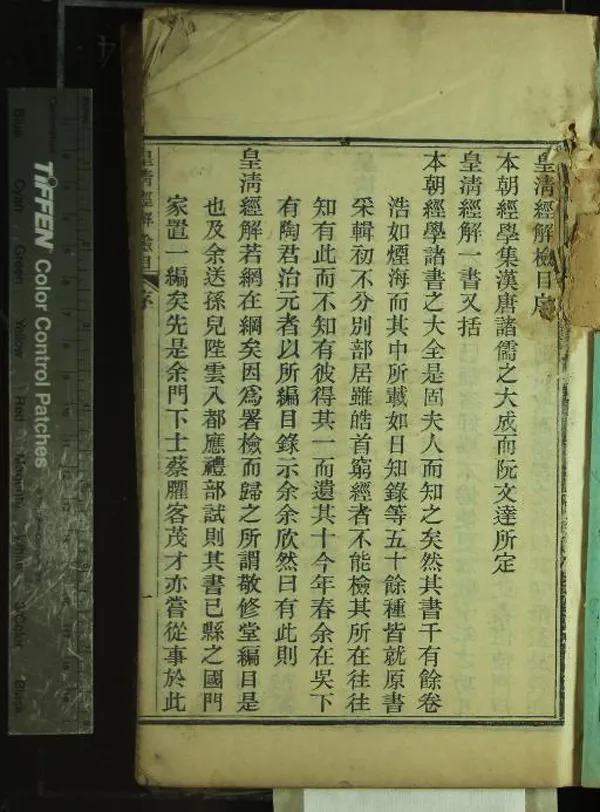 皇清經解檢目序
本朝經學集漢唐諸儒之大成而阮文達所定
皇清經解一書又括
本朝經學諸書之大全是固夫人而知之矣然其書千有餘卷
浩如煙海而其中所載如日知錄等五十餘種皆就原書
采輯初不分別部居雖皓首窮經者不能檢其所在往往
知有此而不知有彼得其一而遺其十今年春余在吳下
有陶君治元者以所編目錄示余余欣然曰有此則
皇清經解若網在綱矣因爲署檢而歸之所謂敬修堂編目是
也及余送孫兒陛雲入都應禮部試則其書已縣之國門
家置一編矣先是余門下士蔡臞客茂才亦嘗從事於此
皇清經解檢目
序
一
TIFFEN Color Control Patches
Blue
Cyan
Green
Yellow
Red
Magenta
White
3/Color
Black